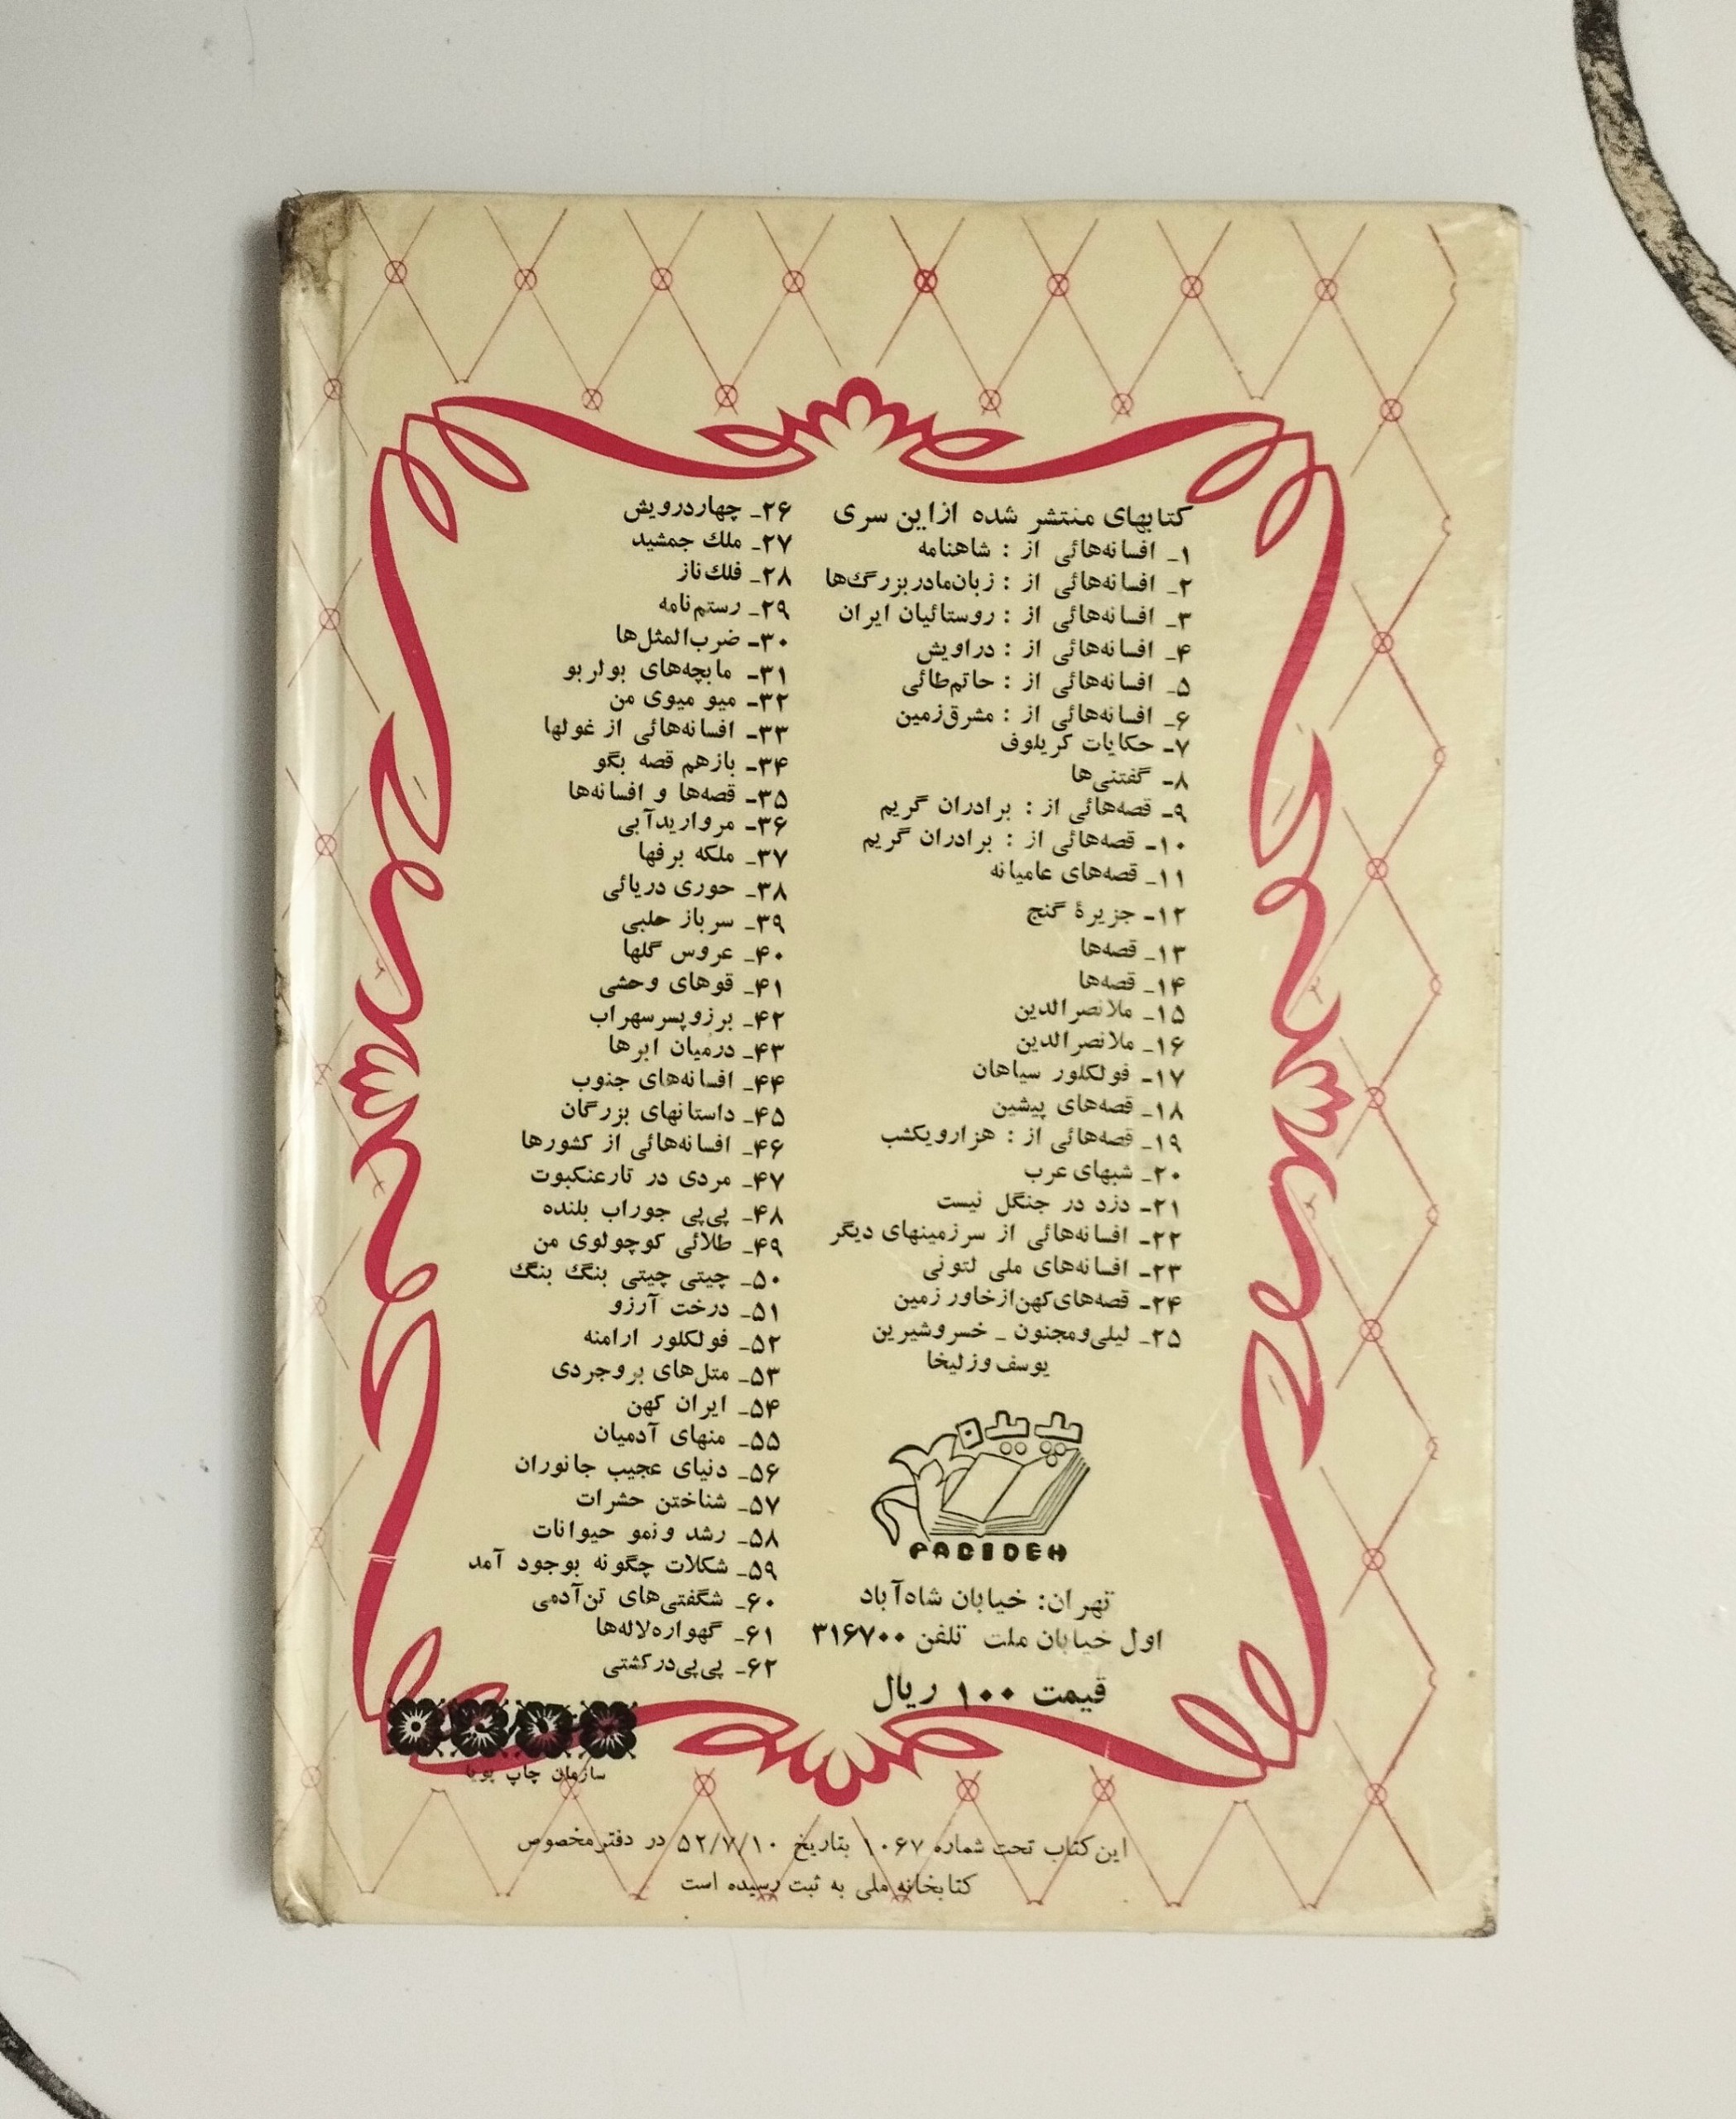 کتابهای منتشر شده از این سری
۱ـ افسانه‌هائی از : شاهنامه
۲ـ افسانه‌هائی از : زبان‌مادربزرگ‌ها
۳ـ افسانه‌هائی از : روستائیان ایران
۴ـ افسانه‌هائی از : دراویش
۵ـ افسانه‌هائی از : حاتم‌طائی
۶ـ افسانه‌هائی از : مشرق‌زمین
۷ـ حکایات کریلوف
۸ـ گفتنی‌ها
۹ـ قصه‌هائی از : برادران گریم
۱۰ـ قصه‌هائی از : برادران گریم
۱۱ـ قصه‌های عامیانه
۱۲ـ جزیرهٔ گنج
۱۳ـ قصه‌ها
۱۴ـ قصه‌ها
۱۵ـ ملانصرالدین
۱۶ـ ملانصرالدین
۱۷ـ فولکلور سیاهان
۱۸ـ قصه‌های پیشین
۱۹ـ قصه‌هائی از : هزارویکشب
۲۰ـ شبهای عرب
۲۱ـ دزد در جنگل نیست
۲۲ـ افسانه‌هائی از سرزمینهای دیگر
۲۳ـ افسانه‌های ملی لتونی
۲۴ـ قصه‌های‌کهن‌ازخاور زمین
۲۵ـ لیلی‌ومجنون ـ خسروشیرین
یوسف وزلیخا
پدیده
PADIDEH
تهران: خیابان شاه‌آباد
اول خیابان ملت تلفن ۳۱۶۷۰۰
قیمت ۱۰۰ ریال
۲۶ـ چهاردرویش
۲۷ـ ملك جمشید
۲۸ـ فلك‌ناز
۲۹ـ رستم‌نامه
۳۰ـ ضرب‌المثل‌ها
۳۱ـ مابچه‌های بولربو
۳۲ـ میو میوی من
۳۳ـ افسانه‌هائی از غولها
۳۴ـ بازهم قصه بگو
۳۵ـ قصه‌ها و افسانه‌ها
۳۶ـ مرواریدآبی
۳۷ـ ملکه برفها
۳۸ـ حوری دریائی
۳۹ـ سرباز حلبی
۴۰ـ عروس گلها
۴۱ـ قوهای وحشی
۴۲ـ برزوپسرسهراب
۴۳ـ درمیان ابرها
۴۴ـ افسانه‌های جنوب
۴۵ـ داستانهای بزرگان
۴۶ـ افسانه‌هائی از کشورها
۴۷ـ مردی در تارعنکبوت
۴۸ـ پی‌پی جوراب بلنده
۴۹ـ طلائی کوچولوی من
۵۰ـ چیتی چیتی بنگ بنگ
۵۱ـ درخت آرزو
۵۲ـ فولکلور ارامنه
۵۳ـ متل‌های بروجردی
۵۴ـ ایران کهن
۵۵ـ منهای آدمیان
۵۶ـ دنیای عجیب جانوران
۵۷ـ شناختن حشرات
۵۸ـ رشد ونمو حیوانات
۵۹ـ شکلات چگونه بوجود آمد
۶۰ـ شگفتی‌های تن‌آدمی
۶۱ـ گهواره‌لاله‌ها
۶۲ـ پی‌پی‌درکشتی
سازمان چاپ پویا
این‌کتاب تحت شماره ۱۰۶۷ بتاریخ ۵۲/۷/۱۰ در دفترمخصوص
کتابخانه ملی به ثبت رسیده است